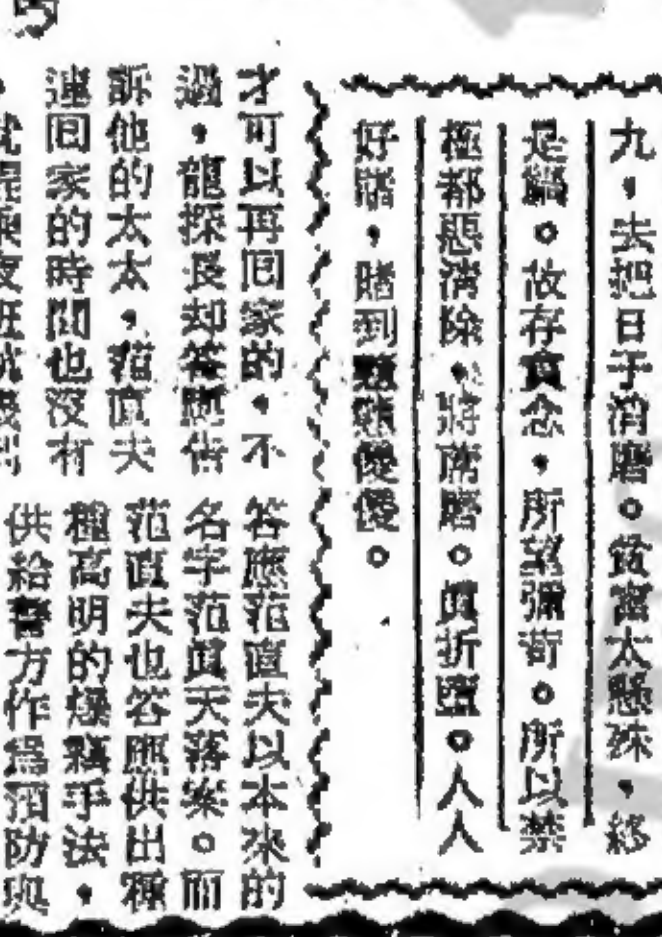 九，去把日子消磨。貧富太懸殊，終
是禍。故存貪念，所望彌奢。所以禁
極都懸消除，將磨。真折墮。人人
好賭，賭到傻傻。
才可以再回家的，不
過，龍探長却答應告
訴他的太太，范直夫
連回家的時間也沒有
答應范直夫以本來的
名字范真天落案。而
范直夫也答應供出種
種高明的爆竊手法，
供給警方作爲預防與